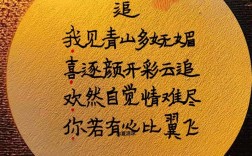 追
我见青山多妩媚
喜逐颜开彩云追
欢然自觉情难尽
你若有心比翼飞